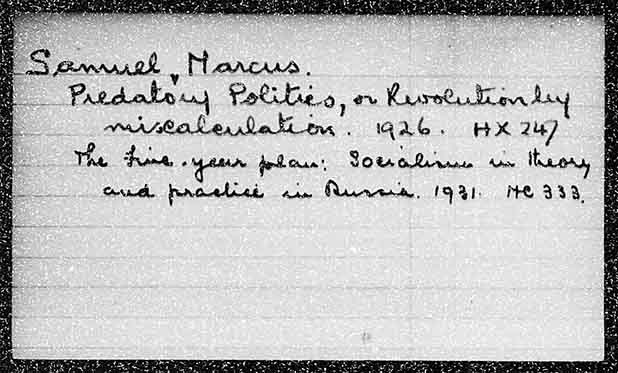 Samuel, Marcus.
Predatory Politics, or Revolution by
miscalculation. 1926. HX 247
The five-year plan: Socialism in theory
and practice in Russia. 1931. HC 333.